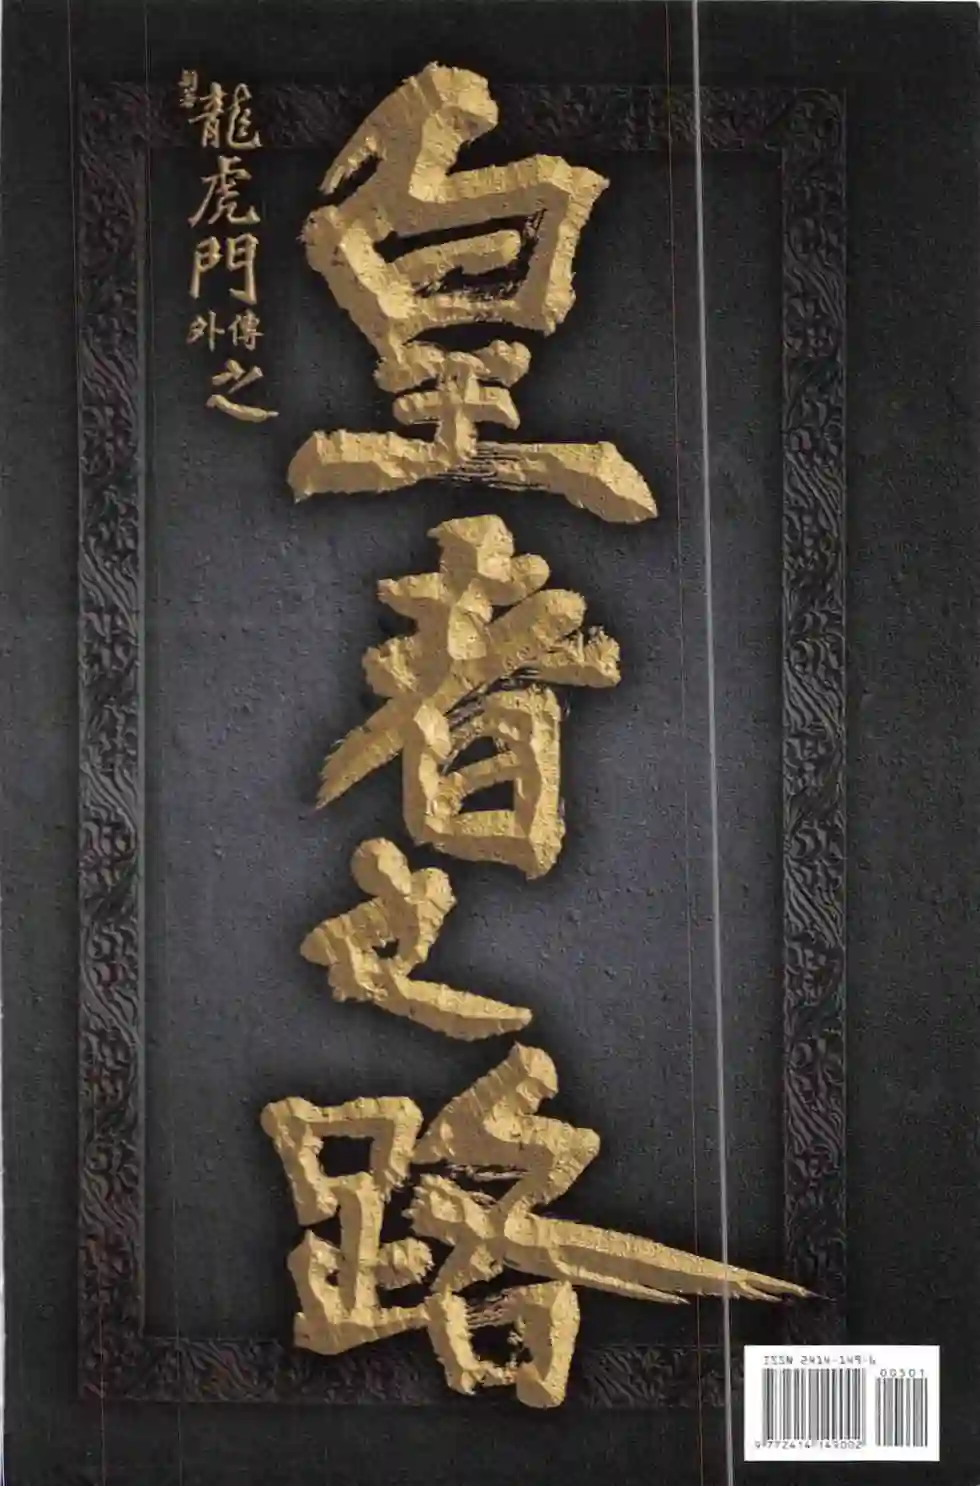 龍虎門
外傳
之
皇者之路
ISSN 2414-149-6
00501
9 772414 149002